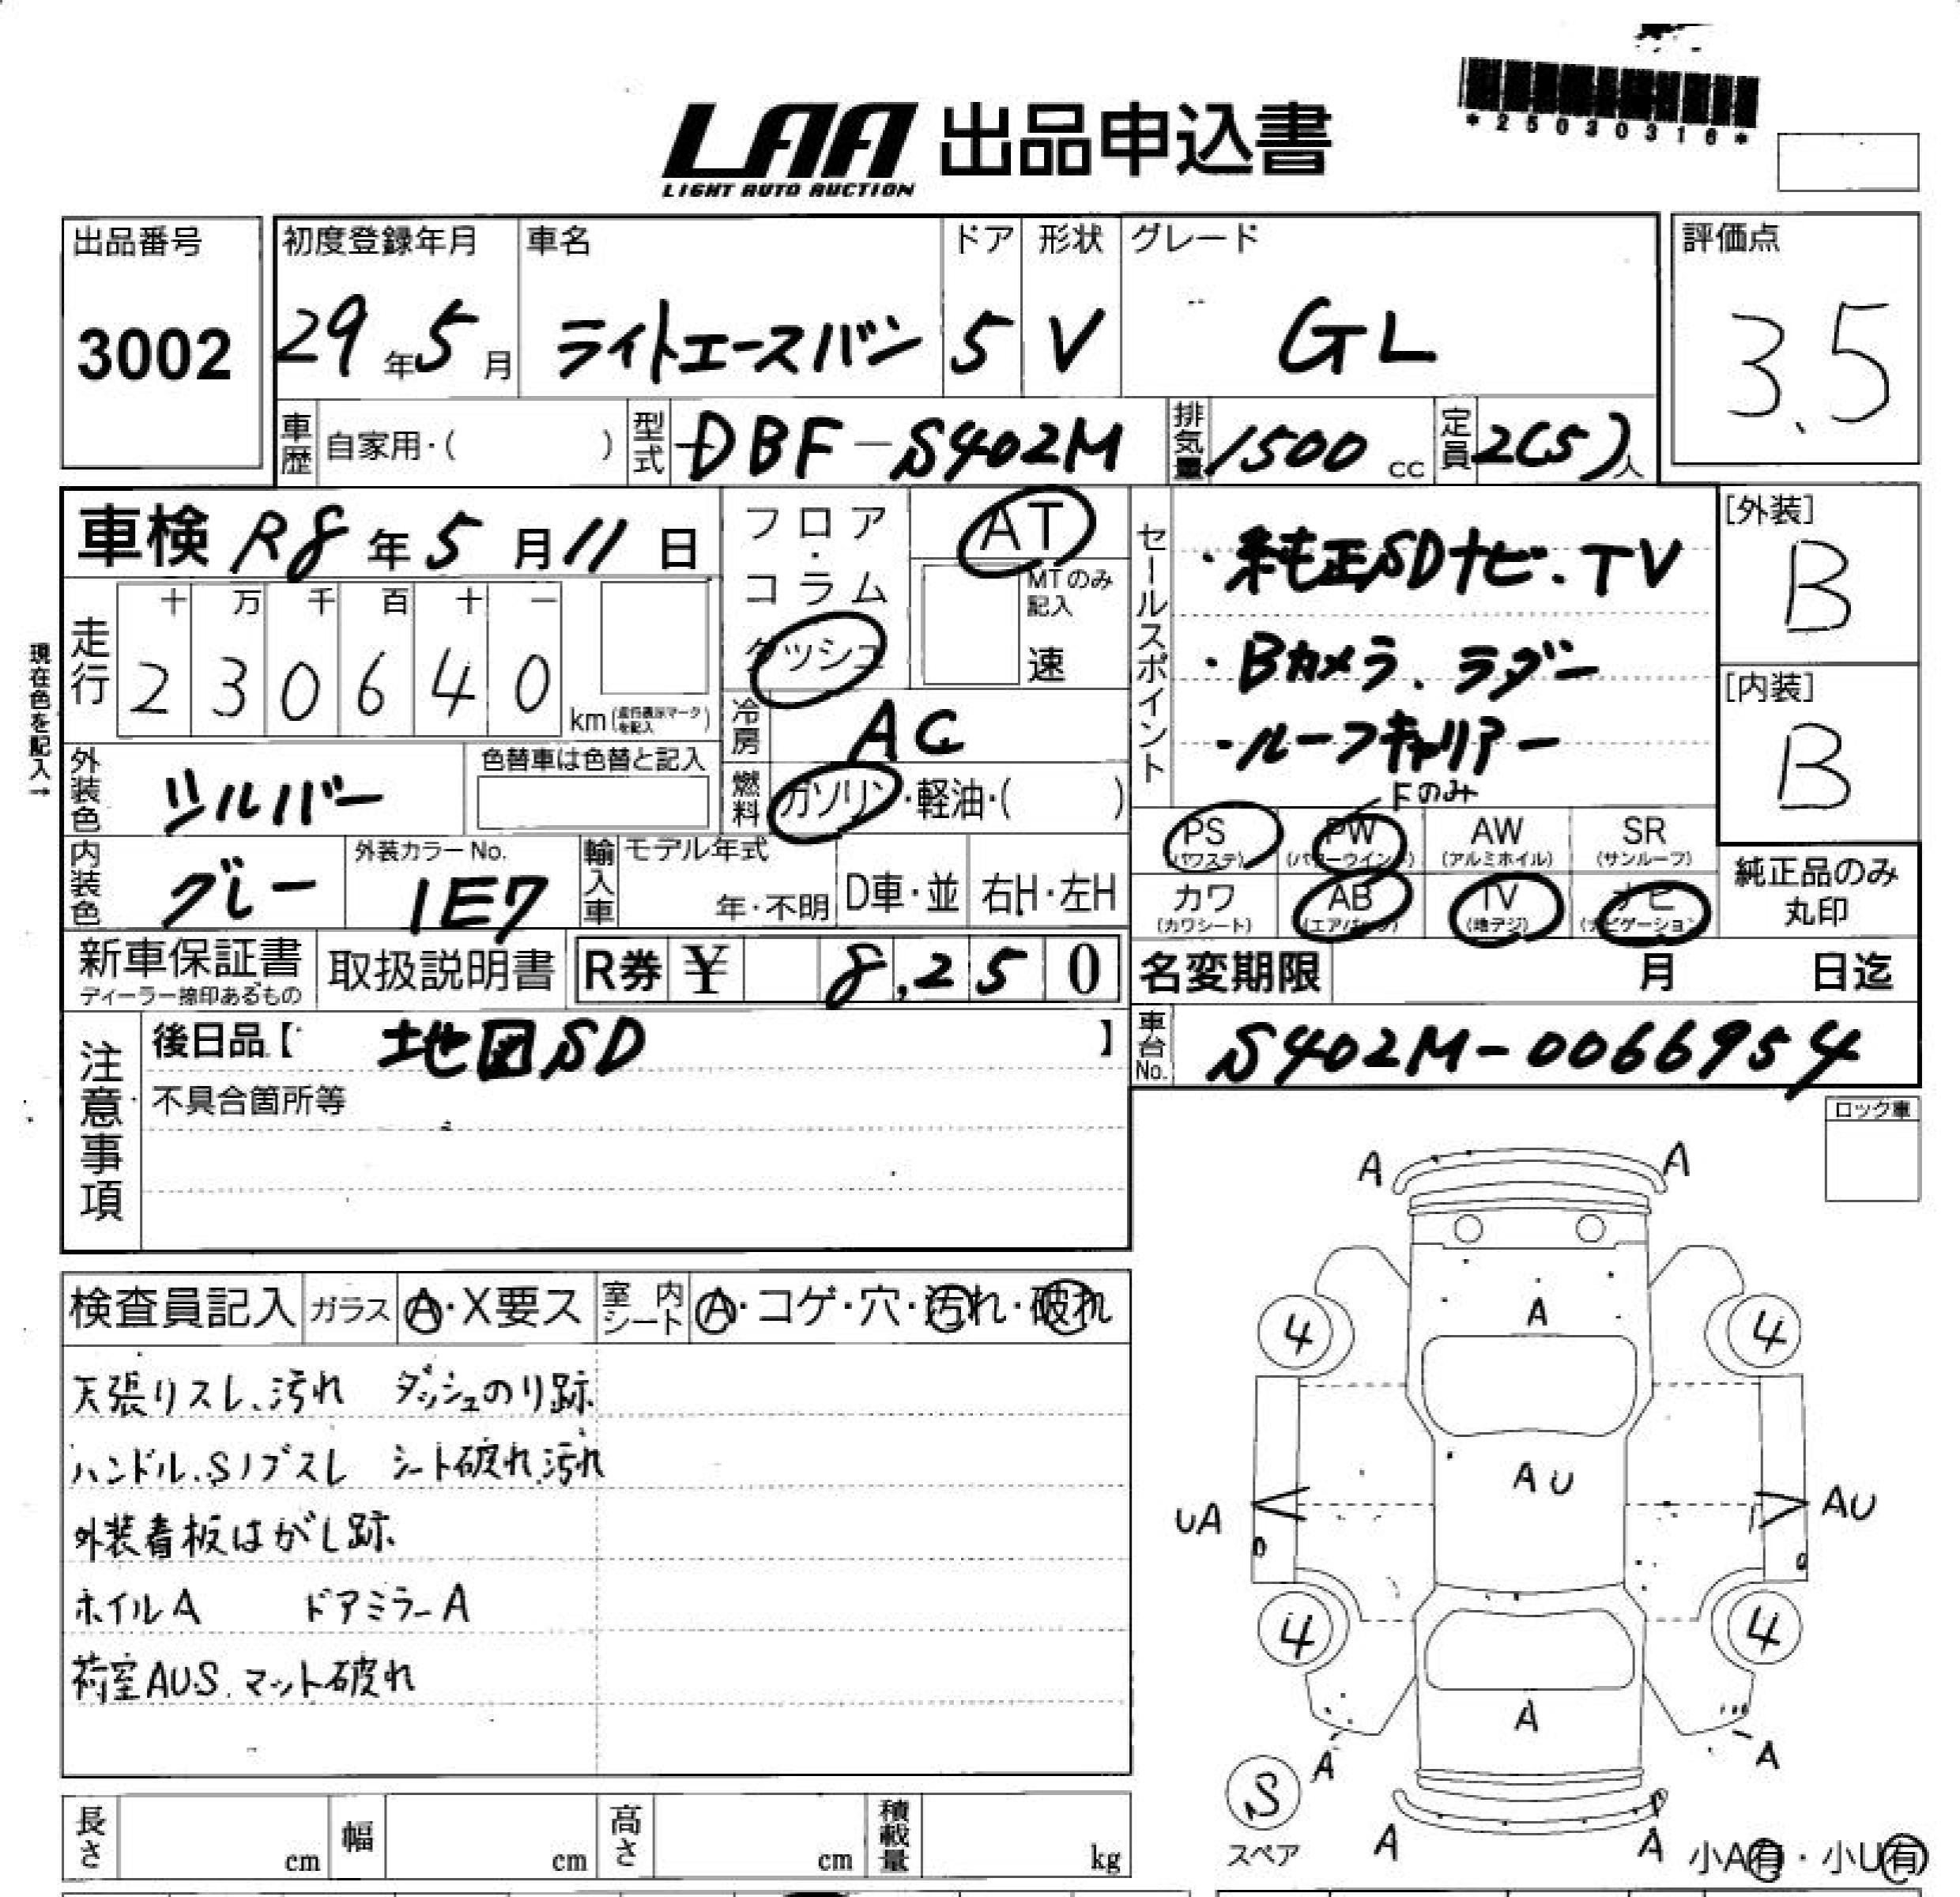 *25030316*
LAA 出品申込書
LIGHT AUTO AUCTION
出品番号 初度登録年月 車名 ドア 形状 グレード 評価点
3002 29年5月 ライトエースバン 5 V GL 3.5
車歴 自家用・( ) 型式 DBF-S402M 排気量 1500cc 定員 2(5)人
車検 R8年5月11日 フロア・コラム ダッシュ AT
MTのみ記入 速
セールスポイント
・純正SDナビ、TV
・Bカメラ、ラジー
・ルーフキャリアー
[外装] B
[内装] B
現在色を記入→
走行 十 万 千 百 十 一
2 3 0 6 4 0 km(走行表示マークを記入)
冷房 AC
外装色 シルバー 色替車は色替と記入
燃料 ガソリン・軽油・( )
Fのみ
PS(パワステ) PW(パワーウインド) AW(アルミホイル) SR(サンルーフ)
カワ(カワシート) AB(エアバック) TV(地デジ) ナビ(ナビゲーション)
純正品のみ丸印
内装色 グレー 外装カラーNo. 1E7 輸入車 モデル年式 年・不明 D車・並 右H・左H
新車保証書 ディーラー捺印あるもの 取扱説明書 R券 ¥ 8,250 名変期限 月 日迄
注意事項 後日品【 地図SD 】 車台No. S402M-0066954
不具合箇所等
ロック車
検査員記入 ガラス A・X要ス 室内シート A・コゲ・穴・汚れ・破れ
天張りスレ、汚れ ダッシュのり跡
ハンドル、Sノブスレ シート破れ汚れ
外装看板はがし跡
ホイルA ドアミラーA
荷室AUS、マット破れ
A A
A
4 4
AU
UA AU
4 4
A
A A
S
スペア
A A
小A有・小U有
長さ cm 幅 cm 高さ cm 積載量 kg